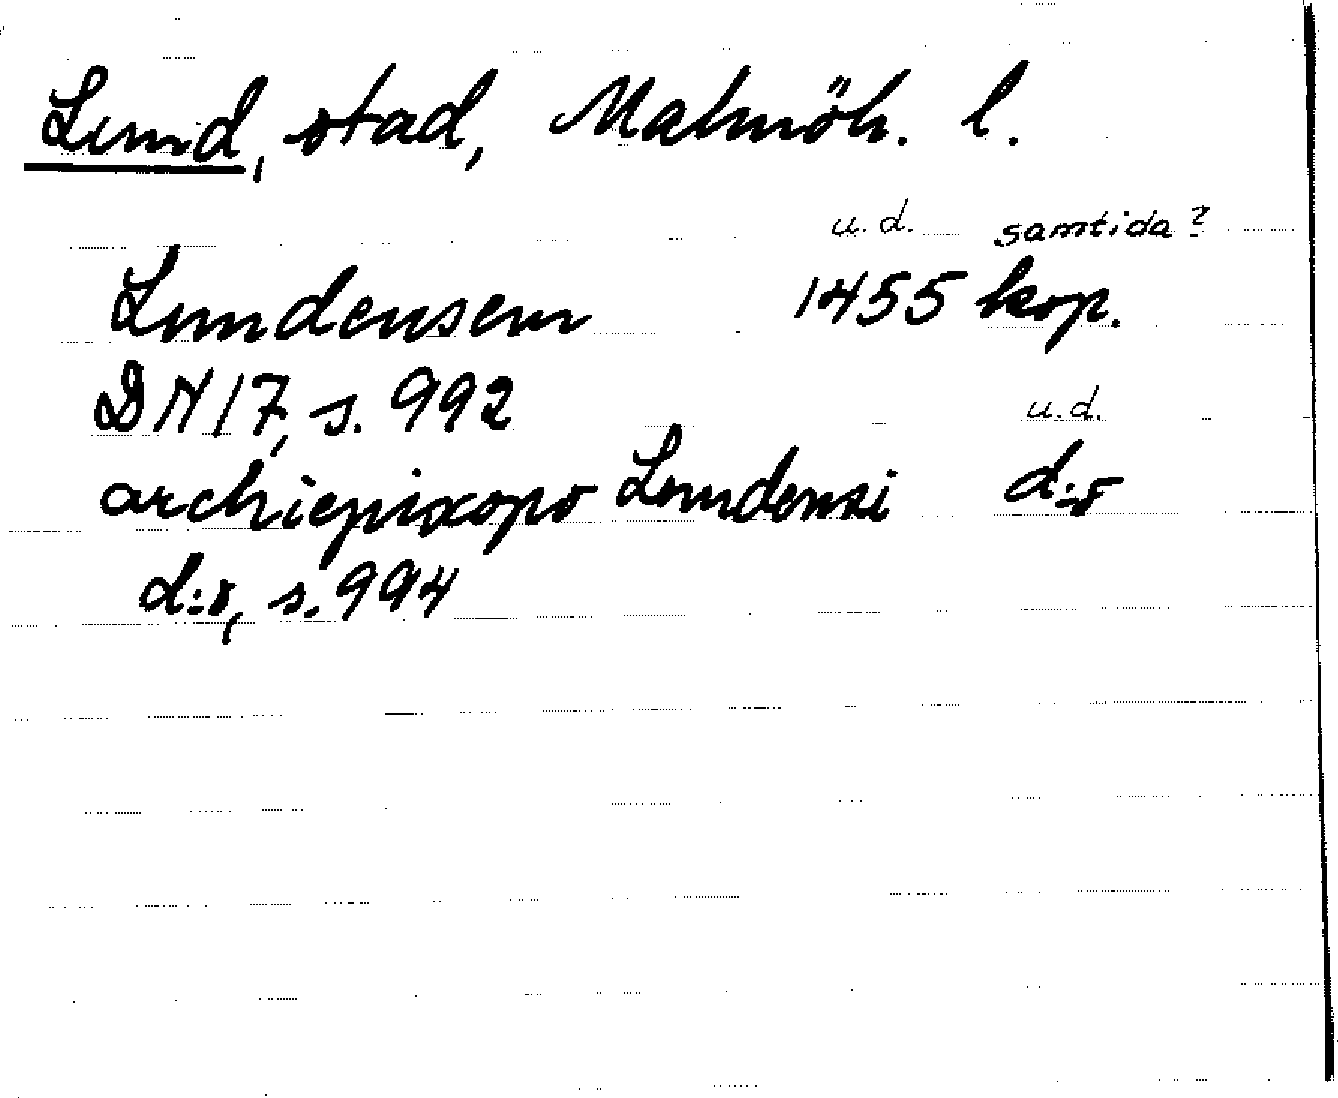 Lund, stad, Malmöh. l.
u.d. samtida?
Lundensem 1455 kop.
DN 17, s. 992
u.d.
archiepiscopo Lundensi d:o
d:o, s. 994